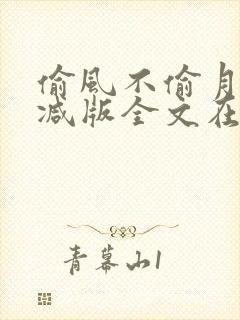 偷風不偷月
減版全文在
青幕山1